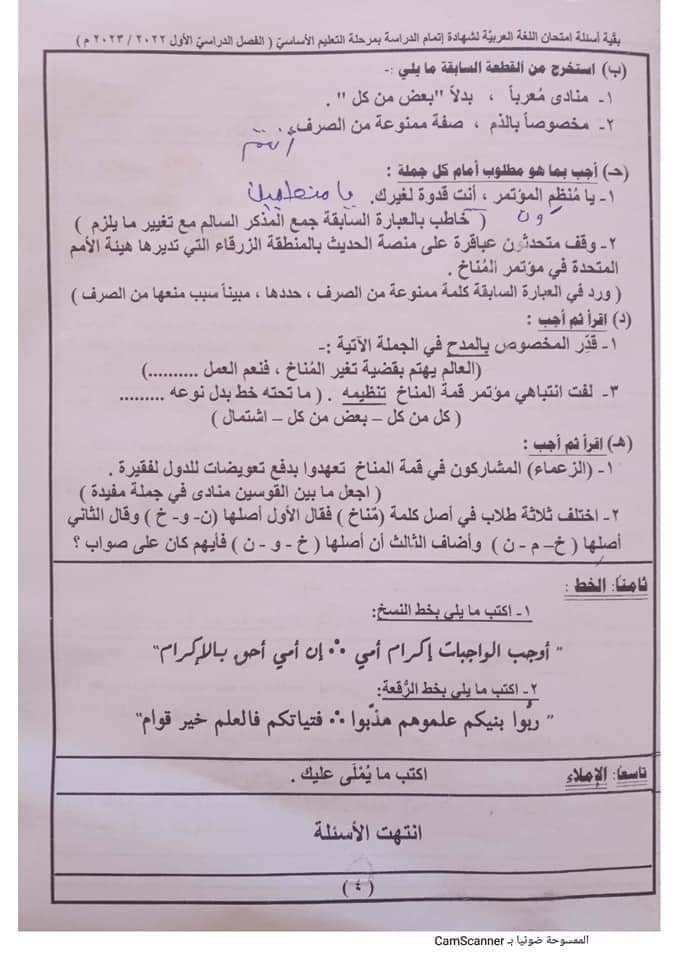 بقية أسئلة امتحان اللغة العربيّة لشهادة إتمام الدراسة بمرحلة التعليم الأساسيّ ( الفصل الدراسيّ الأول ٢٠٢٢ / ٢٠٢٣ م )
(ب) استخرج من القطعة السابقة ما يلي :-
١- منادى مُعرباً ، بدلاً "بعض من كل" .
٢- مخصوصاً بالذم ، صفة ممنوعة من الصرف
أنتم
(حـ) أجب بما هو مطلوب أمام كل جملة :
١- يا مُنظم المؤتمر ، أنت قدوة لغيرك. يا منظمين
ون
( خاطب بالعبارة السابقة جمع المذكر السالم مع تغيير ما يلزم )
٢- وقف متحدثون عباقرة على منصة الحديث بالمنطقة الزرقاء التي تديرها هيئة الأمم
المتحدة في مؤتمر المُناخ.
( ورد في العبارة السابقة كلمة ممنوعة من الصرف ، حددها ، مبيناً سبب منعها من الصرف )
(د) اقرأ ثم أجب :
١- قدِّر المخصوص بالمدح في الجملة الآتية :-
(العالم يهتم بقضية تغير المُناخ ، فنعم العمل ..........)
٣- لفت انتباهي مؤتمر قمة المناخ تنظيمه . ( ما تحته خط بدل نوعه .........
( كل من كل – بعض من كل – اشتمال )
(هـ) اقرأ ثم أجب :
١- (الزعماء) المشاركون في قمة المناخ تعهدوا بدفع تعويضات للدول لفقيرة .
( اجعل ما بين القوسين منادى في جملة مفيدة )
٢- اختلف ثلاثة طلاب في أصل كلمة (مُناخ) فقال الأول أصلها (ن- و- خ ) وقال الثاني
أصلها ( خ– م - ن ) وأضاف الثالث أن أصلها ( خ - و - ن ) فأيهم كان على صواب ؟
ثامناً: الخط :
١- اكتب ما يلي بخط النسخ:
" أوجب الواجبات إكرام أمي ∴ إن أمي أحق بالإكرام"
٢- اكتب ما يلي بخط الرُّقعة:
" ربُّوا بنيكم علموهم هذّبوا ∴ فتياتكم فالعلم خير قوام"
تاسعاً: الإملاء اكتب ما يُمْلَى عليك .
انتهت الأسئلة
( ٤ )
الممسوحة ضوئيا بـ CamScanner